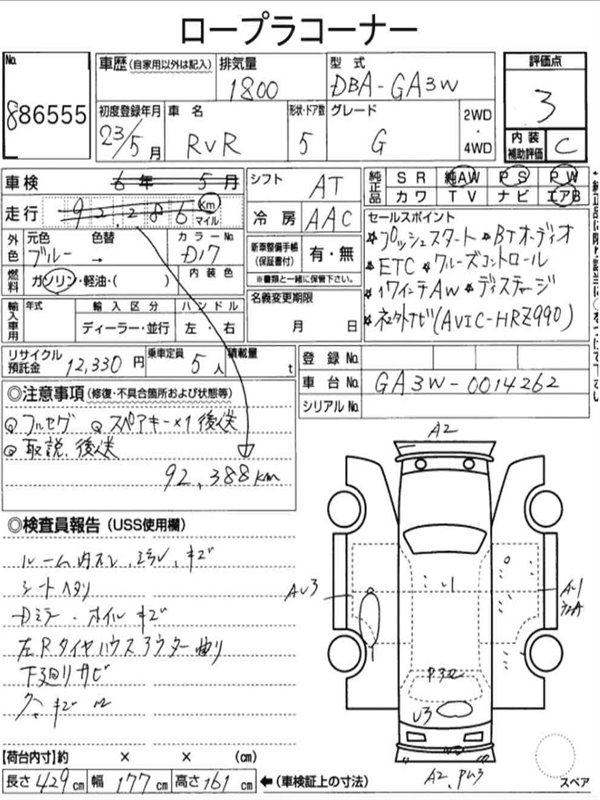 ロープラコーナー
No. 886555
車歴 (自家用以外は記入)
排気量 1800
型式 DBA-GA3W
評価点 3
初度登録年月 23/5月
車名 RVR
形状・ドア数 5
グレード G
2WD・4WD
内装補助評価 C
車検 6年 5月
シフト AT
純正品 SR 純AW PS PW
カワ TV ナビ エアB
走行 92,286 Km マイル
冷房 AAC
セールスポイント
★プッシュスタート ★BTオーディオ
★ETC ★クルーズコントロール
★17インチAW ★ディスチャージ
★ネ土外ナビ(AVIC-HRZ990)
外色 元色 ブルー 色替
カラーNo. D17
新車整備手帳(保証書付) 有・無
※書類と一緒に保管下さい。
燃料 ガソリン・軽油・( )
内装色
名義変更期限 月 日
輸入車用 年式 輸入区分 ハンドル
ディーラー・並行 左・右
リサイクル預託金 12,330円
乗車定員 5人
積載量 t
登録No.
車台No. GA3W-0014262
シリアルNo.
◎注意事項 (修復・不具合箇所および状態等)
フルセグ スペアキー×1 後送
取説、後送
92,388km
◎検査員報告 (USS使用欄)
ルーム内ヨゴレ、コゲ、キズ
シートヘタリ
Dミラー・ホイルキズ
左Rタイヤハウスアウター曲り
下廻りサビ
A2
AU3
A1
P3
U3
A2, PW3
スペア
【荷台内寸】約 × × (cm)
長さ 429cm 幅 177cm 高さ 161cm ←(車検証上の寸法)